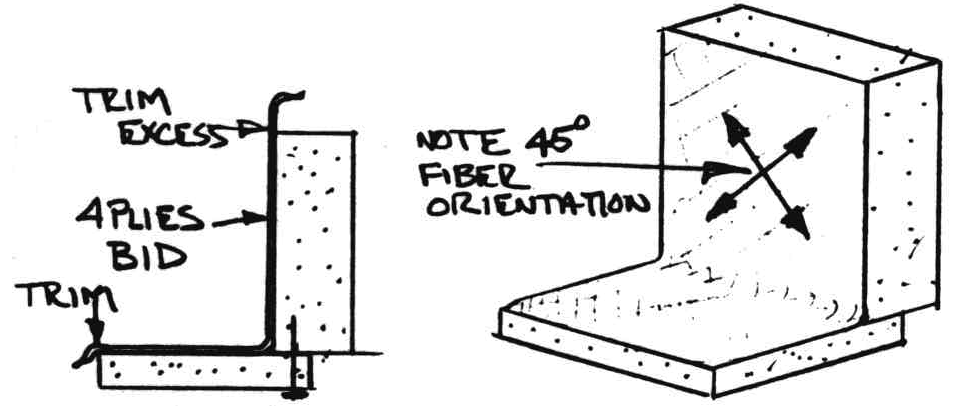 TRIM
EXCESS
4 PLIES
BID
TRIM
NOTE 45°
FIBER
ORIENTATION